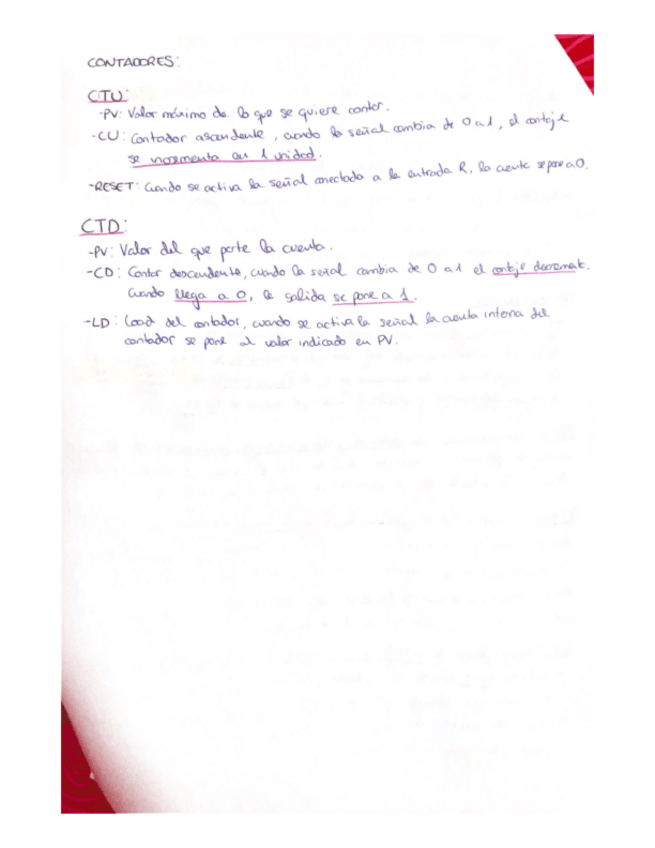 CONTADORES:
CTU:
-PV: Valor máximo de lo que se quiere contar.
-CU: Contador ascendente, cuando la señal cambia de 0 a 1, el contaje
se incrementa en 1 unidad.
-RESET: Cuando se activa la señal conectada a la entrada R, la cuenta se pone a 0.
CTD:
-PV: Valor del que parte la cuenta.
-CD: Contar descendente, cuando la señal cambia de 0 a 1 el contaje decrement.
Cuando llega a 0, la salida se pone a 1.
-LD: Load del contador, cuando se activa la señal la cuenta interna del
contador se pone al valor indicado en PV.